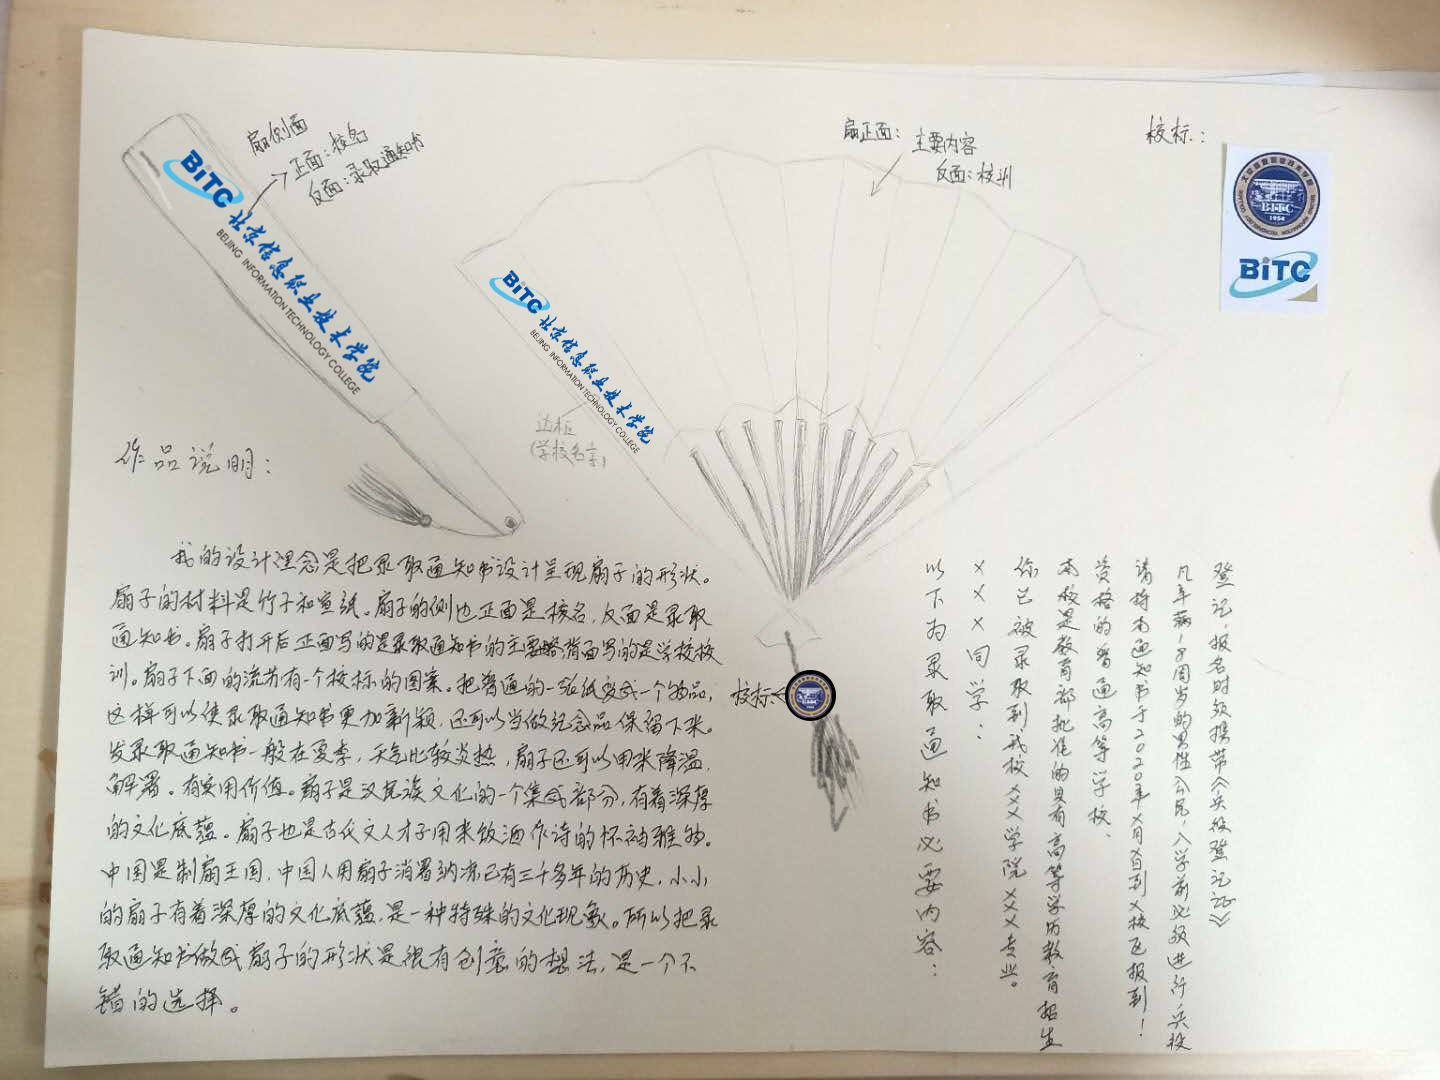 扇侧面
正面：校名
反面：录取通知书
BiTC
北京信息职业技术学院
BEIJING INFORMATION TECHNOLOGY COLLEGE
扇正面：
主要内容
反面：校训
校标：
BITC
1954
BiTC
BiTC
北京信息职业技术学院
BEIJING INFORMATION TECHNOLOGY COLLEGE
边框
（学校名字）
作品说明：
我的设计理念是把录取通知书设计呈现扇子的形状。
扇子的材料是竹子和宣纸。扇子的侧边正面是校名，反面是录取
通知书。扇子打开后正面写的是录取通知书的主要 背面写的是学校校
训。扇子下面的流苏有一个校标的图案。把普通的一张纸变成一个物品，
这样可以使录取通知书更加新颖，还可以当做纪念品保留下来。
发录取通知书一般在夏季，天气比较炎热，扇子还可以用来降温，
解署。有实用价值。扇子是汉民族文化的一个集成部分，有着深厚
的文化底蕴。扇子也是古代文人才子用来饮酒作诗的怀袖雅物。
中国是制扇王国，中国人用扇子消署纳凉已有三千多年的历史，小小
的扇子有着深厚的文化底蕴，是一种特殊的文化现象。所以把录
取通知书做成扇子的形状是很有创意的想法，是一个不
错的选择。
校标：
以下为录取通知书必要内容：
XXX同学：
你已被录取到我校XXX学院XXX专业。
本校是教育部批准的具有高等学历教育招生
资格的普通高等学校，
请持本通知书于2020年X月X日到X校区报到！
凡年满18周岁的男性公民，入学前必须进行兵役
登记，报名时须携带《兵役登记证》